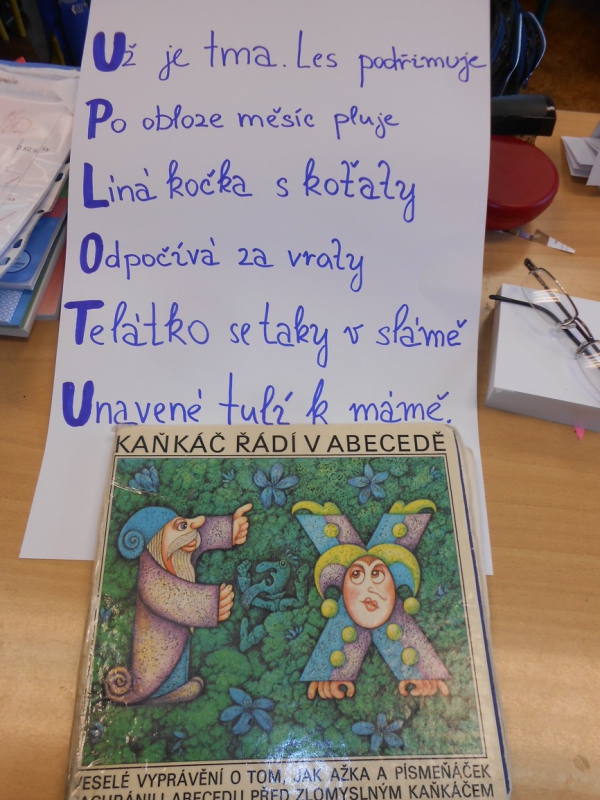 Už je tma. Les podřimuje
Po obloze měsíc pluje
Líná kočka s koťaty
Odpočívá za vraty
Telátko se taky v slámě
Unavené tulí k mámě.
KAŇKÁČ ŘÁDÍ V ABECEDĚ
VESELÉ VYPRÁVĚNÍ O TOM, JAK AŽKA A PÍSMEŇÁČEK
ZACHRÁNILI ABECEDU PŘED ZLOMYSLNÝM KAŇKÁČEM